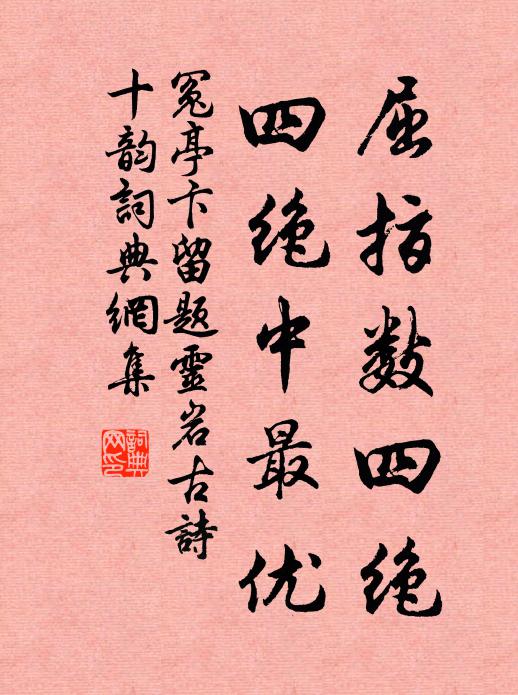 屈指数四绝
四绝中最优
冕亭卞留题灵岩古诗
十韵词典网集
词典
网印